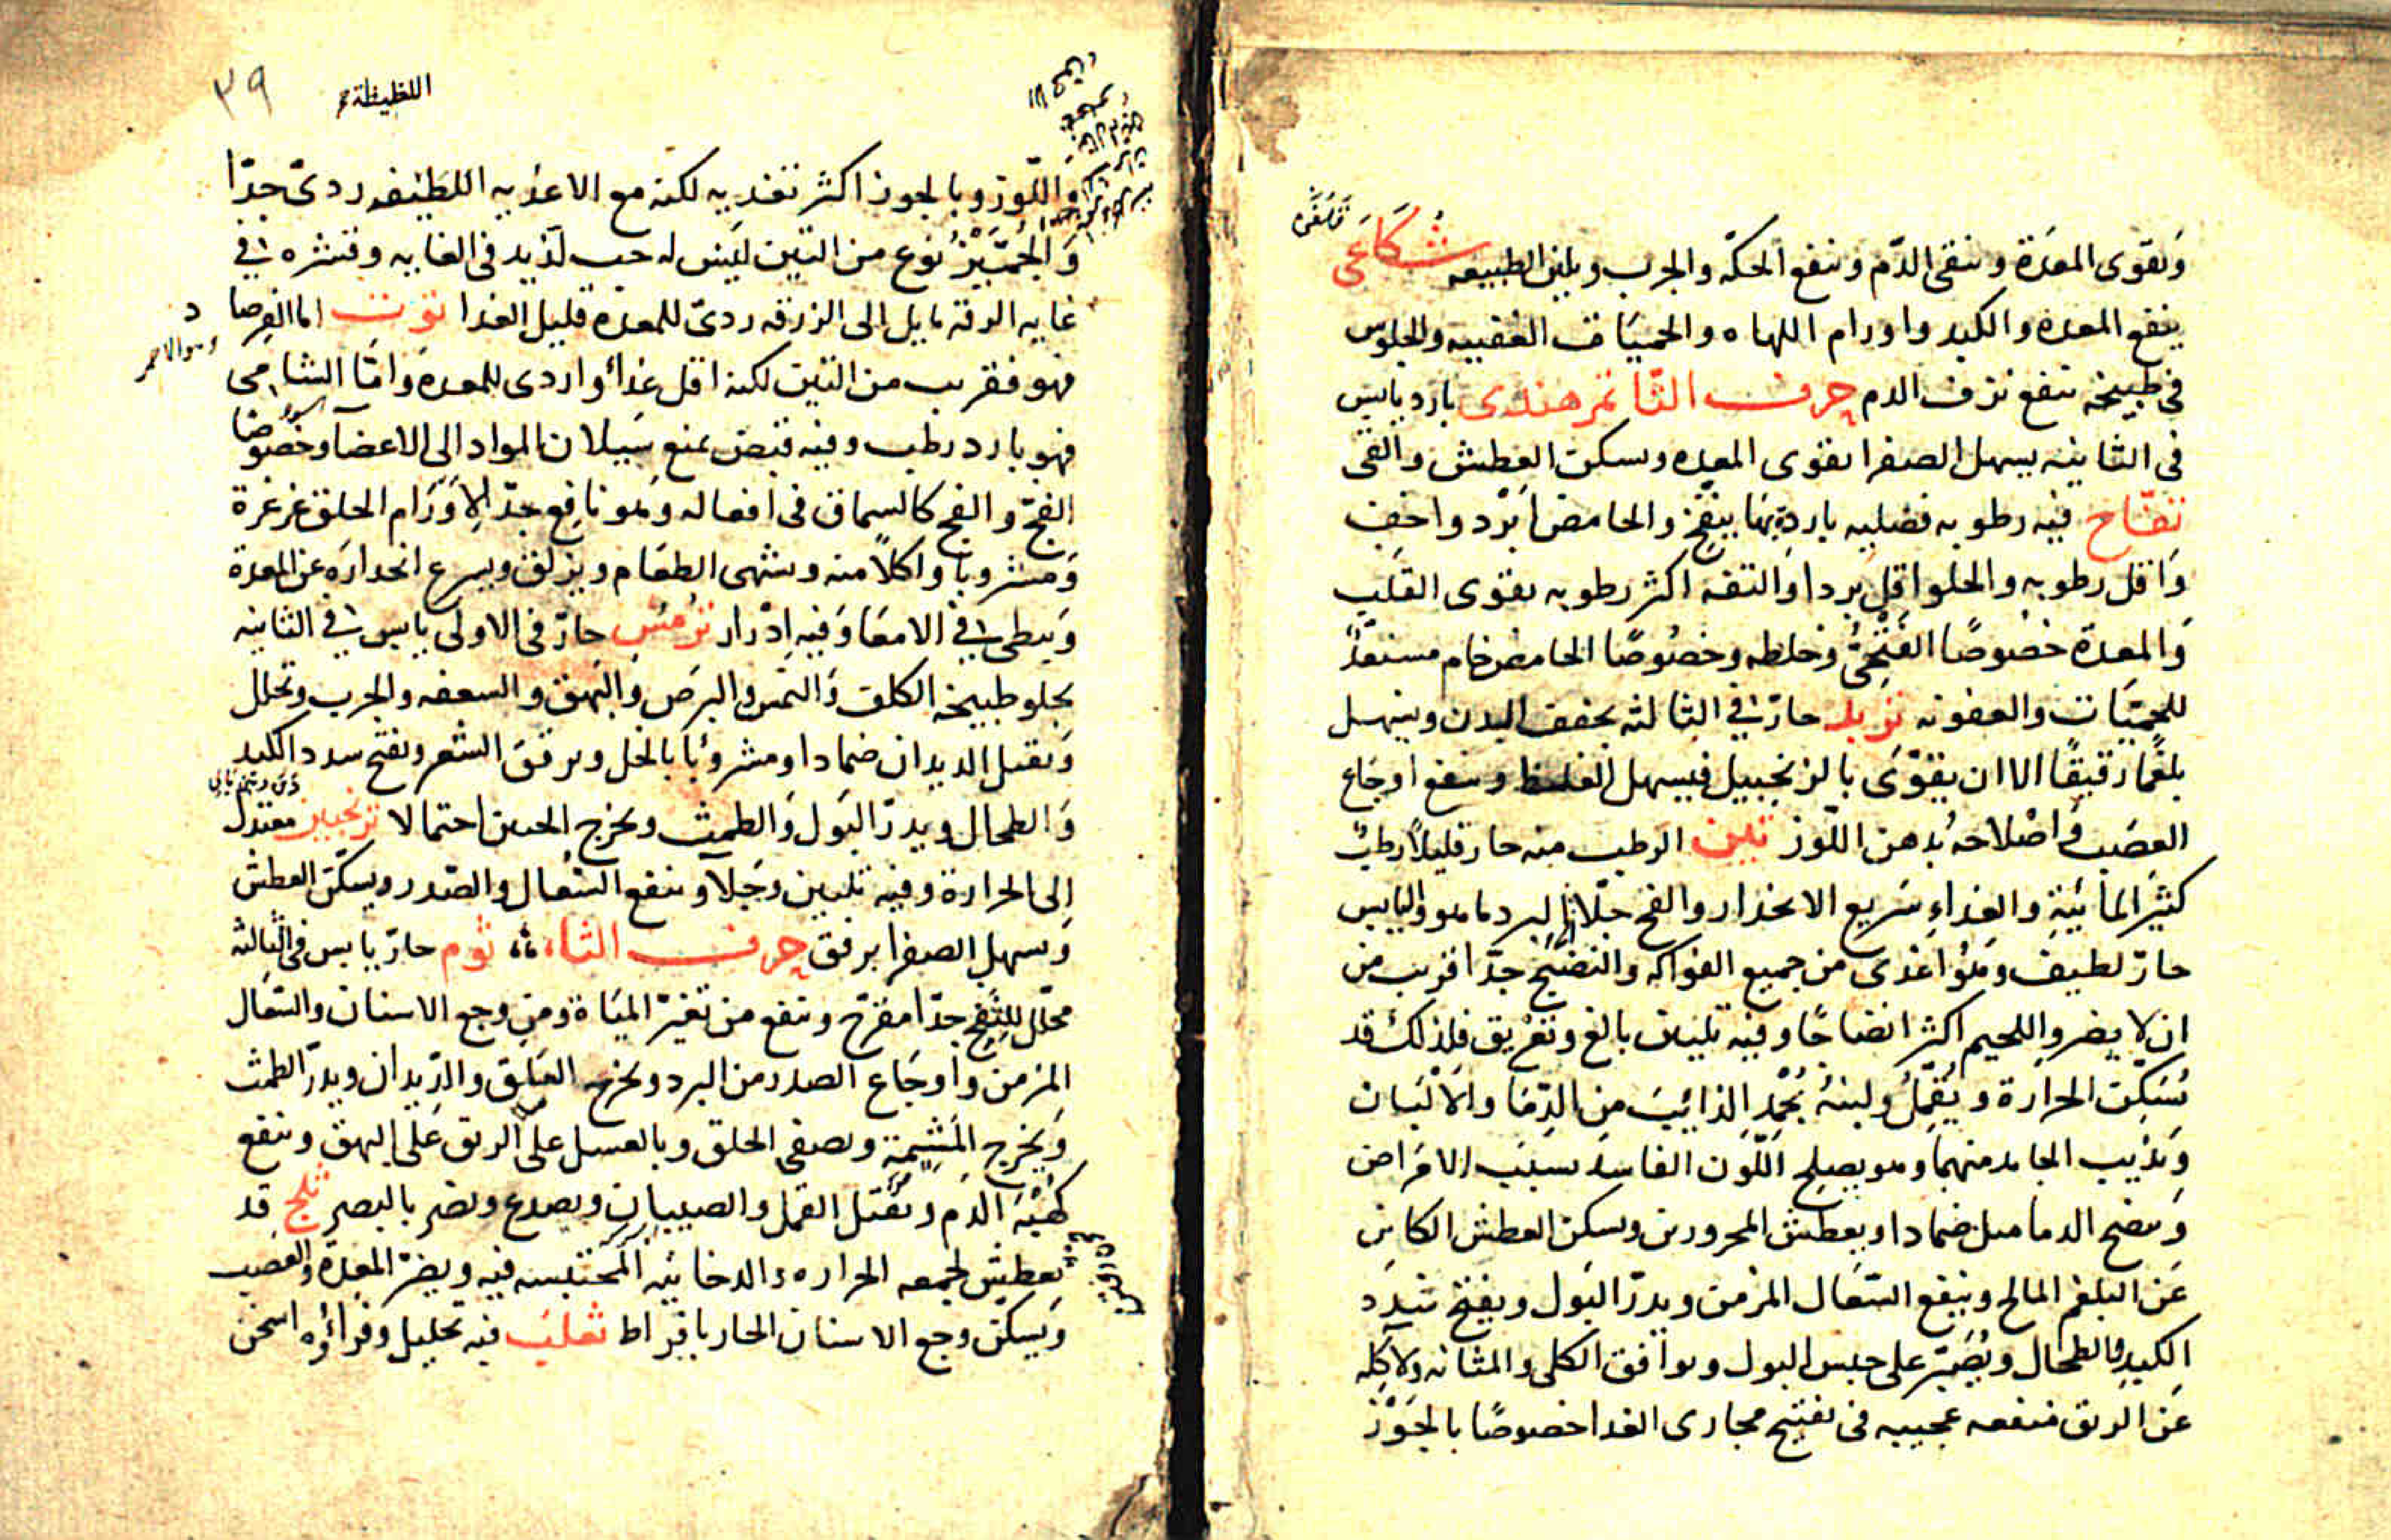 وَيقوى المعدَة وينقى الدّم وينفع الحكّه والجرب ويلين الطبيعه شُكَاعَى
ينفع المعده والكبد واورام اللهاه والحميَات العتيقه والجلوس
فى طبيخه ينفع نزف الدم حرف التّا تمر هندى بارد يابس
فى الثانيه يسهل الصفرا يقوى المعده ويسكن العطش والقى
تفّاح فيه رطوبه فضليه بارده بها ينفخ والحامض ابْرد واخف
وَاقل رطوبه والحلو اقل بردا وَالتفه اكثر رطوبه يقوى القلب
وَالمعدَة خصُوصًا الفَتْحِىُّ وخلطه وخصُوصًا الحامض خام مستعدٌّ
للحميّات والعفونه تربد حارّ فى الثالثه يجفف البدن ويسهل
بلغمًا رقيقًا الا ان يقوّى بالزنجبيل فيسهل الغليظ وينفع اوجَاع
العصَب وَاصْلاحهُ بدهن اللّوز تين الرطب منه حار قليلاً رطبٌ
كثيرُ المائيّةِ والغذاءِ سَريع الانحدار والفج جلّا الى البرد ما هو واليابس
حارّ لطيف وَهُوَ اغذى من جميع الفواكه والنضيج جدّا قريب من
ان لا يضر واللحيم اكثر انضاجًا وفيه تليين بالغ وتعْريق فلذلك قد
يُسَكِّن الحرَارة ويُقَمِّلُ ولبنهُ يُجْمِد الذائِبَ من الدِّمَا والاَلْبَان
وَيُذيب الجامد منهمَا وهو يصلح اللّوَن الفاسدَ بسَبَب الامْرَاض
وَينضج الدماميل ضمادا ويعطش المحرورين ويسكن العطش الكاين
عَن البلغم المالح وينفع السّعَال المزمن ويدرّ البَول ويفتح سدد
الكبد والطحال ويُصَبّر على حبس البول ويوافق الكلى والمثانه ولاَكِله
عَن الريق منفعه عجيبه فى تفتيح مجارى الغدا خصوصًا بالجَوْز
٣٩
وَاللّوز وبالجوز اكثر تغذيه لكنه مع الاغذيه اللطيفه ردىّ جدّا
وَالجُمَّيْزُ نوع من التين ليس له حب لذيد فى الغايه وقشره فى
غايه الرقه مايل الى الزرقه ردىّ للمعده قليل الغدا توت اما الفرصاد
وهو الاحمر
فهو فقريب من التين لكنه اقل غذاً واردى للمعدة وَامّا الشامى
فهو بارد رطب وفيه قبض يمنع سَيلان المواد الى الاعضآ وخصُوصًا
الفجّ والفج كالسماق فى افعاله وَهو نافع جدّا لاَوْرَام الحلق غرغرة
وَمشروباً وَاكلاً منه ويشهى الطعَام ويزلق ويسرع انحدارَه عن المعدة
وَيبطى فى الامعَا وَفيه ادْرار ترمُس حارّ فى الاولى يابس فى الثانيه
يجلو طبيخه الكلف وَالنمش والبرَص وَالبَهق والسعفه والجرب ويحلل
وَيقتل الديدان ضمادا ومشروباً بالخل ويرقق الشعر ويفتح سدد الكبد
وَالطحال ويدرّ البَول وَالطمث ويخرج الجنين احتمالا ترنجبين معتدل
اِلى الحرارة وفيه تليين وَجَلآ وينفع السّعَال والصّدر ويسكّن العطش
وَيسهل الصفرا برفق حرف الثاء ثوم حارّ يابس فى الثالثه
محلّل للنفخ جدّا مقرّح وينفع من تغيّر الميَاة ومن وجع الاسنان والسّعَال
المزمن وَاوجَاع الصدر من البرد ويخرج العَلَق والدّيدان ويدرّ الطمث
وَيخرج المَشِيمَة ويصفى الحلق وبالعسل على البهق وينفع
كُهْبَةَ الدّم ويَقْتل القمل والصيبان ويصدع ويضر بالبصر ثلج قد
يعطش لجمعه الحراره الدخانيه المحتبسه فيه ويضرّ المعدَة والعَصب
وَيسكّن وجع الاسنان الحار بافراط ثعلب فيه تحليل وفراؤه اسخن